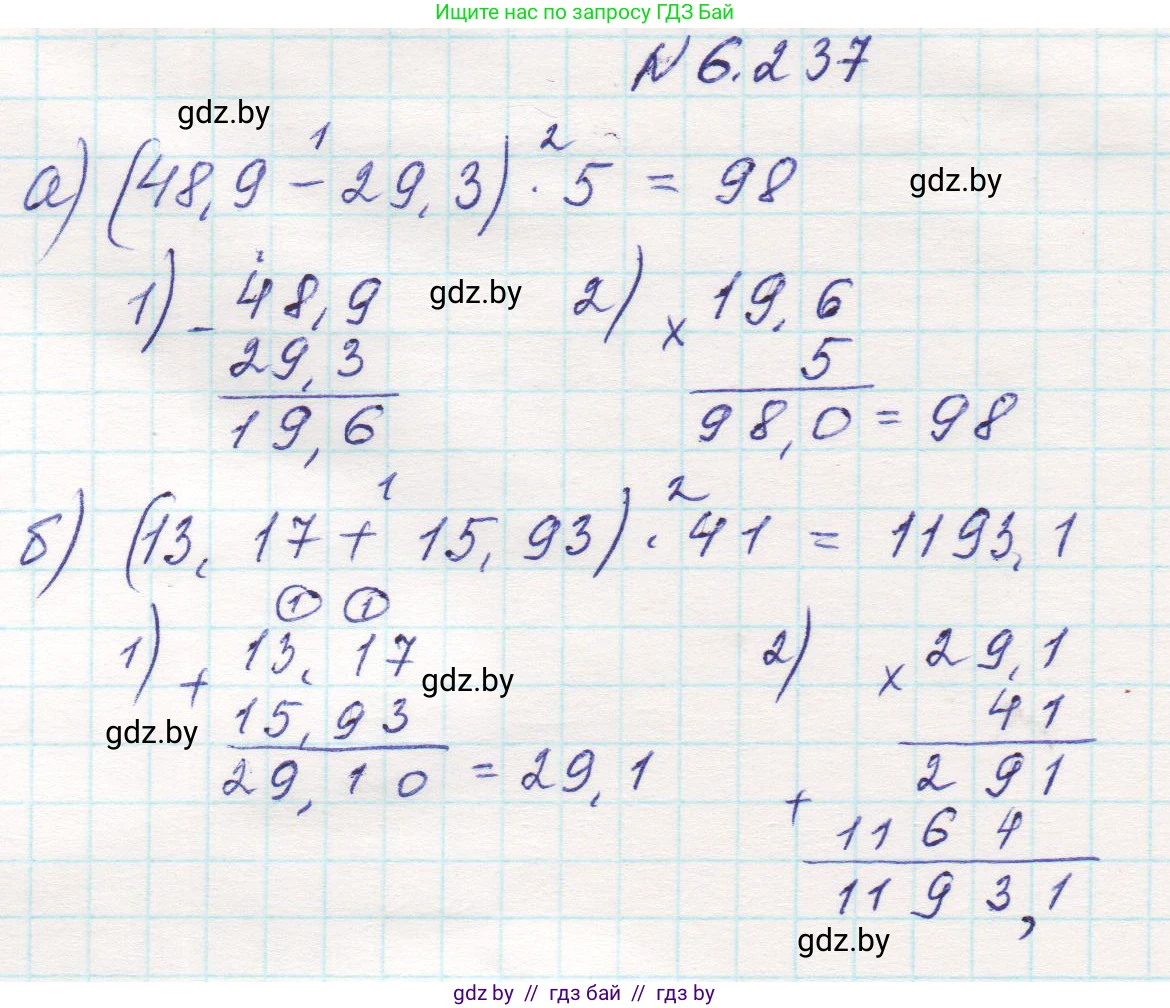 Ищите нас по запросу ГДЗ Бай
N 6.237
gdz.by
1 2
а) (48,9 - 29,3) · 5 = 98
gdz.by
1) - 48,9
29,3
19,6
gdz.by
2) x 19,6
5
98,0 = 98
1 2
б) (13,17 + 15,93) · 41 = 1193,1
1 1
1) + 13,17
15,93
29,10 = 29,1
gdz.by
gdz.by
2) x 29,1
41
291
+ 1164
1193,1
gdz.by
gdz by // гдз бай // gdz by